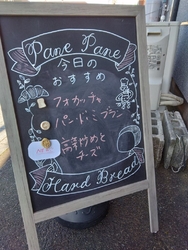 Pane Pane
今日の
おすすめ
フォカッチャ
パン・ド・ミ ブラン
高菜炒めと
チーズ
Hand Bread